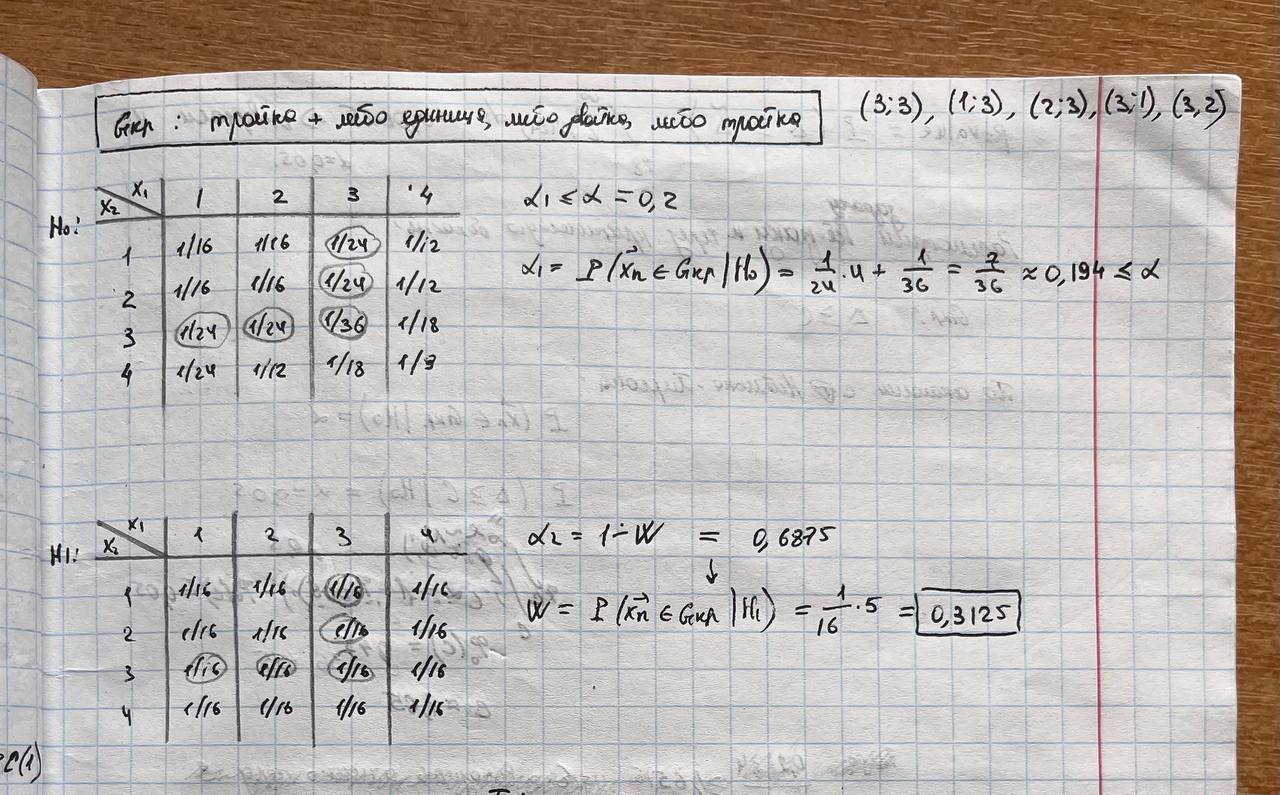 Gкр : тройка + либо единица, либо двойка, либо тройка
(3;3), (1;3), (2;3), (3;1), (3,2)
H₀:
x₂ \ x₁ 1 2 3 4
1 1/16 1/16 1/24 1/12
2 1/16 1/16 1/24 1/12
3 1/24 1/24 1/36 1/18
4 1/24 1/12 1/18 1/9
α₁ ≤ α = 0,2
α₁ = P(x⃗n ∈ Gкр | H₀) = 1/24 · 4 + 1/36 = 7/36 ≈ 0,194 ≤ α
H1:
x₂ \ x₁ 1 2 3 4
1 1/16 1/16 1/16 1/16
2 1/16 1/16 1/16 1/16
3 1/16 1/16 1/16 1/16
4 1/16 1/16 1/16 1/16
α₂ = 1 - W = 0,6875
↓
W = P(x⃗n ∈ Gкр | H₁) = 1/16 · 5 = 0,3125